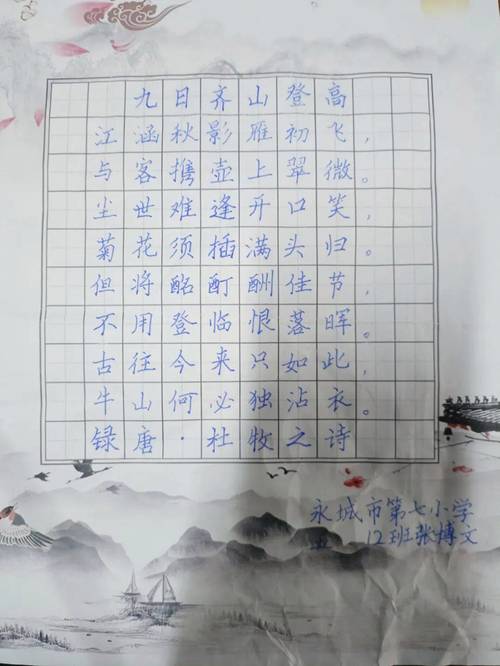 九日齐山登高
江涵秋影雁初飞，
与客携壶上翠微。
尘世难逢开口笑，
菊花须插满头归。
但将酩酊酬佳节，
不用登临恨落晖。
古往今来只如此，
牛山何必独沾衣。
録唐·杜牧之诗
永城市第七小学
12班张博文